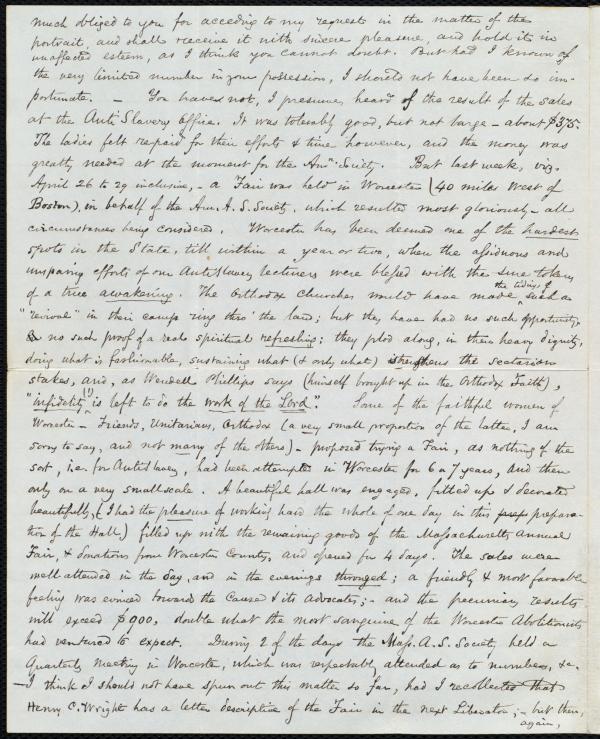 much obliged to you for acceding to my requests in the matter of the
portrait, and shall receive it with sincere pleasure, and hold it in
unaffected esteem, as I think you cannot doubt. But had I known of
the very limited number in your possession, I should not have been so im-
portunate. — You have not, I presume, heard of the result of the sales
at the Anti Slavery Office. It was tolerably good, but not large – about $375.
The ladies felt repaid for their efforts & time however, and the money was
greatly needed at the moment for the Amn Society. But last week, viz.
April 26 to 29 inclusive, – a Fair was held in Worcester (40 miles West of
Boston), in behalf of the Am. A. S. Society, which resulted most gloriously – all
circumstances being considered. Worcester has been deemed one of the hardest
spots in the State, till within a year or two, when the assiduous and
unsparing efforts of our AntiSlavery lecturers were blessed with the sure tokens
of a true awakening. The Orthodox Churches would have made the tidings of such a
"revival" in their camps ring thro' the land; but they have had no such opportunity,
& no such proof of a real spiritual refreshing; they plod along, in their heavy dignity,
doing what is fashionable, sustaining what (& only what) strengthens the sectarian
stakes, and, as Wendell Phillips says (himself brought up in the Orthodox Faith),
"infidelity (!) is left to do the work of the Lord". Some of the faithful women of
Worcester – Friends, Unitarians, Orthodox (a very small proportion of the latter, I am
sorry to say, and not many of the others) – proposed trying a Fair, as nothing of the
sort, i.e. for AntiSlavery, had been attempted in Worcester for 6 or 7 years, and then
only on a very small scale. A beautiful hall was engaged, fitted up & decorated
beautifully, (I had the pleasure of working hard the whole of one day in this prepara-
tion of the Hall) filled up with the remaining goods of the Massachusetts Annual
Fair, & donations from Worcester County, and opened for 4 days. The sales were
well attended in the day, and in the evenings thronged; a friendly & most favorable
feeling was evinced toward the Cause & its advocates; – and the pecuniary results
will exceed $900, double what the most sanguine of the Worcester Abolitionists
had ventured to expect. During 2 of the days the Mass. A. S. Society held a
Quarterly Meeting in Worcester, which was respectably attended as to numbers, &c.
— I think I should not have spun out this matter so far, had I recollected that
Henry C. Wright has a letter descriptive of the Fair in the next Liberator; – but then,
again,